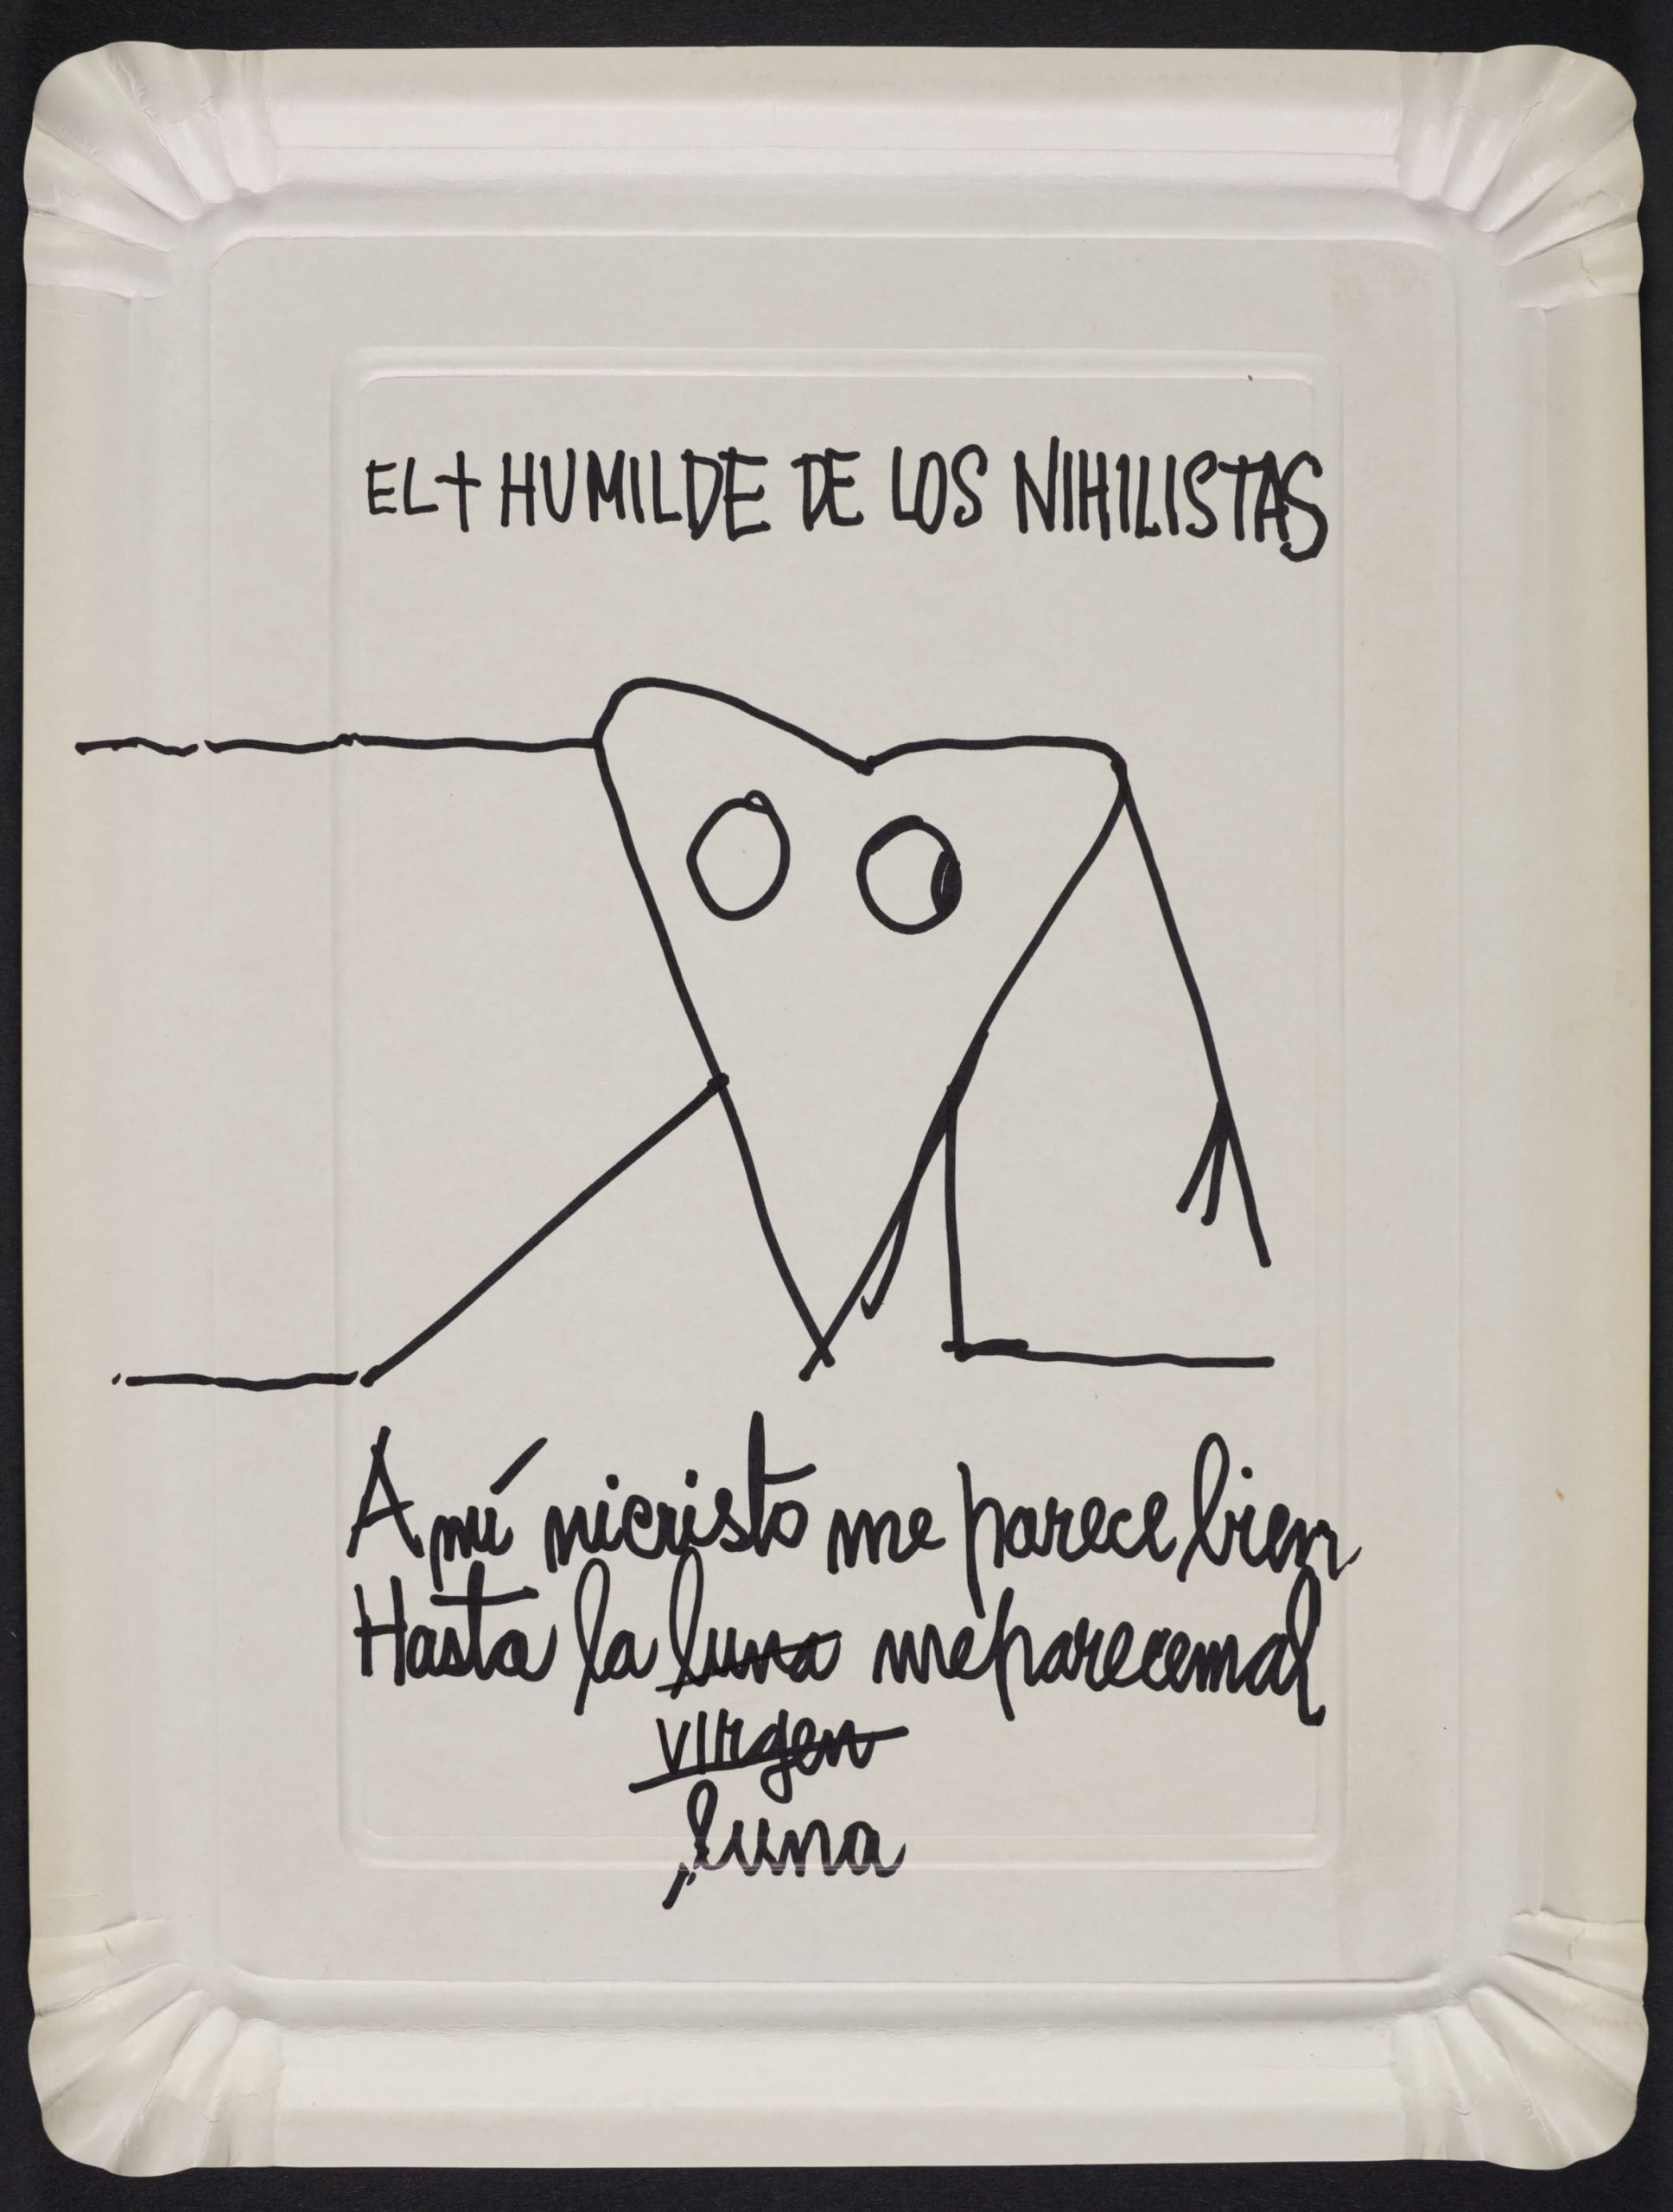 EL + HUMILDE DE LOS NIHILISTAS
A mí nicristo me parece bien
Hasta la luna meparecemal
virgen
luna